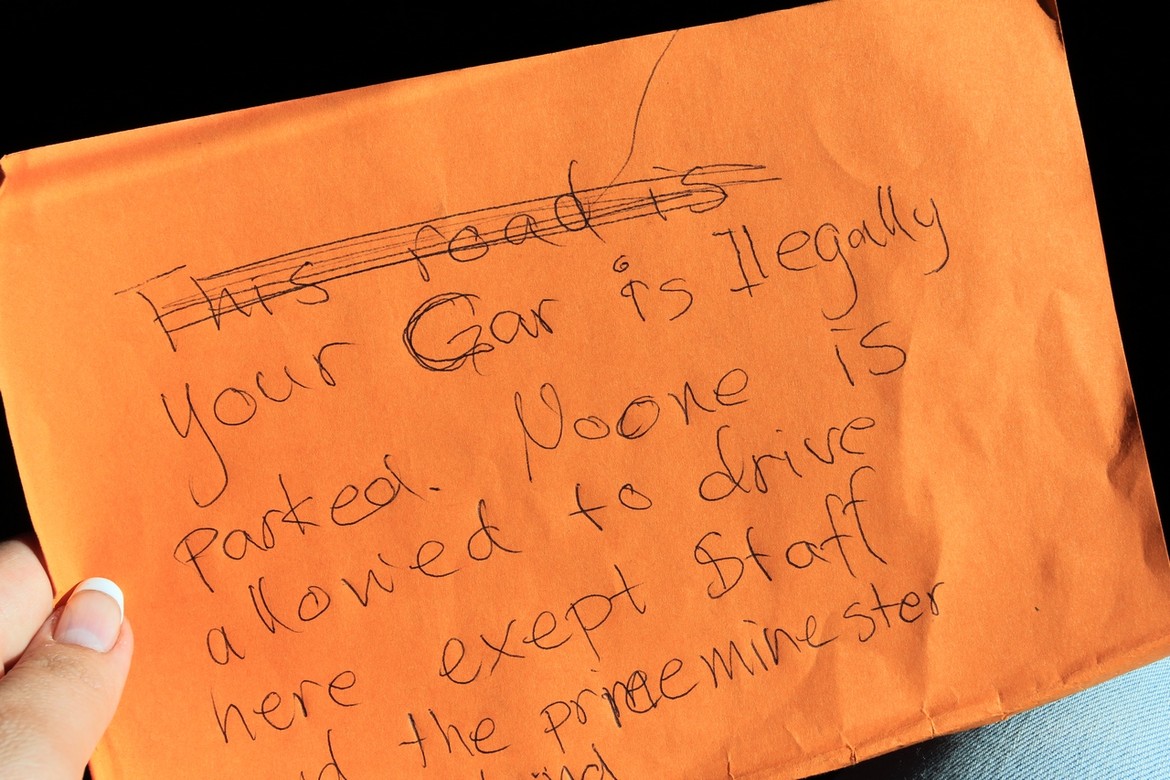 This road is
your Car is Ilegally
parked. Noone is
allowed to drive
here exept Staff
the primeminester